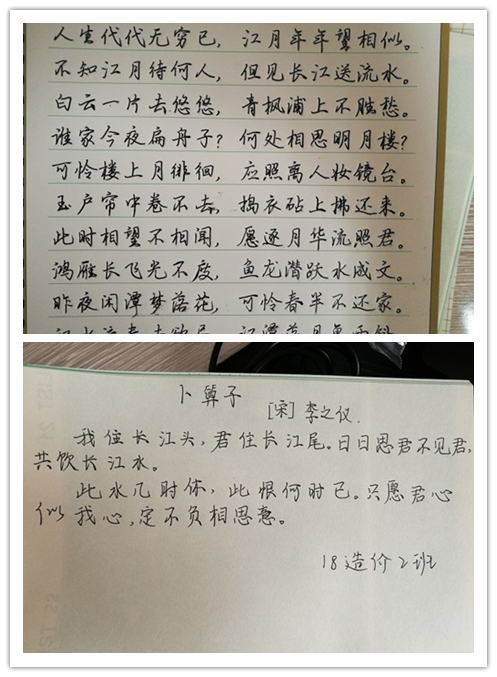 人生代代无穷已，江月年年望相似。
不知江月待何人，但见长江送流水。
白云一片去悠悠，青枫浦上不胜愁。
谁家今夜扁舟子？何处相思明月楼？
可怜楼上月徘徊，应照离人妆镜台。
玉户帘中卷不去，捣衣砧上拂还来。
此时相望不相闻，愿逐月华流照君。
鸿雁长飞光不度，鱼龙潜跃水成文。
昨夜闲潭梦落花，可怜春半不还家。
卜算子
[宋]李之仪.
我住长江头，君住长江尾。日日思君不见君，
共饮长江水。
此水几时休，此恨何时已。只愿君心
似我心，定不负相思意。
18造价2班